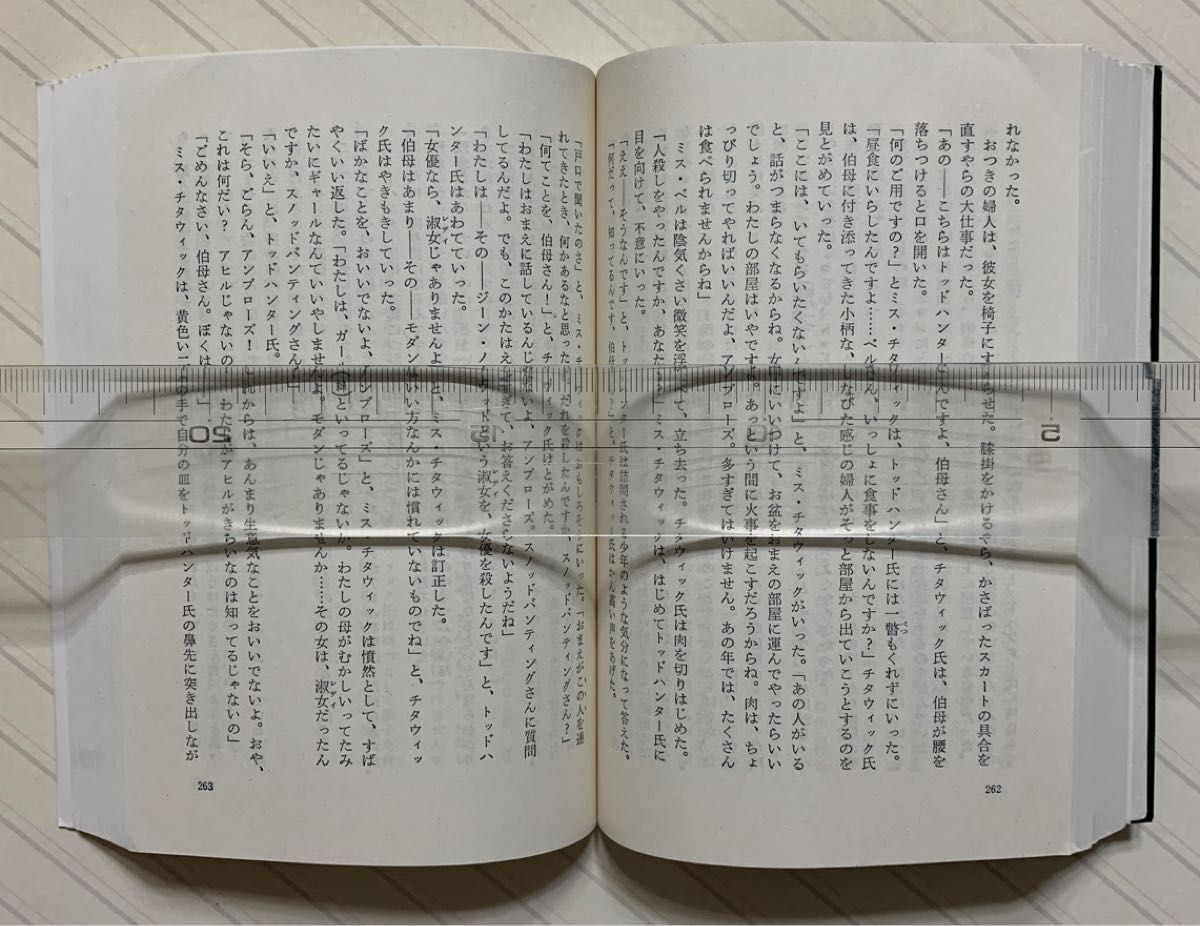 れなかった。
おつきの婦人は、彼女を椅子にすわらせた。膝掛をかけるやら、かさばったスカートの具合を
直すやらの大仕事だった。
「あの――こちらはトッドハンターさんですよ、伯母さん」と、チタウィック氏は、伯母が腰を
落ちつけると口を開いた。
「何のご用ですの？」とミス・チタウィックは、トッドハンター氏には一瞥もくれずにいった。
「昼食にいらしたんですよ……ベルさん、いっしょに食事をしないんですか？」チタウィック氏
は、伯母に付き添ってきた小柄な、しなびた感じの婦人がそっと部屋から出ていこうとするのを
見とがめていった。
「ここには、いてもらいたくないんですよ」と、ミス・チタウィックがいった。「あの人がいる
と、話がつまらなくなるからね。女中にいいつけて、お盆をおまえの部屋に運んでやったらいい
でしょう。わたしの部屋はいやですよ。あっという間に火事を起こすだろうからね。肉は、ちょ
っぴり切ってやればいいんだよ、アンブローズ。多すぎてはいけません。あの年では、たくさん
は食べられませんからね」
ミス・ベルは陰気くさい微笑を浮べて、立ち去った。チタウィック氏は肉を切りはじめた。
「人殺しをやったんですか、あなたは？」ミス・チタウィックは、はじめてトッドハンター氏に
目を向けて、不意にいった。
「ええ――そうなんです」と、トッドハンター氏は詰問される少年のような気分になって答えた。
「何だって、知ってるんです、伯母さん？」と、チタウィック氏はかん高い声をあげた。
262
「戸口で聞いたのさ」と、ミス・チタウィックはおもしろそうにいった。「おまえがこの人を連
れてきたとき、何かあるなと思ったよ。だれを殺したんですか、スノッドバンティングさん？」
「何てことを、伯母さん！」と、チタウィック氏はとがめた。
「わたしはおまえに話しているんじゃないよ、アンブローズ。スノッドバンティングさんに質問
してるんだよ。でも、このかたはえらすぎて、お答えくださらないようだね」
「わたしは――その――ジーン・ノーウッドという淑女を、女優を殺したんです」と、トッドハ
レディ
ンター氏はあわてていった。
「女優なら、淑女じゃありませんよ」と、ミス・チタウィックは訂正した。
レディ
「伯母はあまり――その――モダンないい方なんかには慣れていないものでね」と、チタウィッ
ク氏はやきもきしていった。
「ばかなことを、おいいでないよ、アンブローズ」と、ミス・チタウィックは憤然として、すば
やくいい返した。「わたしは、ガール（娘）といってるじゃないか。わたしの母がむかしいってたみ
たいにギャールなんていいやしませんよ。モダンじゃありませんか……その女は、淑女だったん
レディ
ですか、スノッドバンティングさん？」
「いいえ」と、トッドハンター氏。
「そら、ごらん、アンブローズ！　これからは、あんまり生意気なことをおいいでないよ。おや、
これは何だい？　アヒルじゃないの。わたしがアヒルがきらいなのは知ってるじゃないの」
「ごめんなさい、伯母さん。ぼくは――」
ミス・チタウィックは、黄色い二本の手で自分の皿をトッドハンター氏の鼻先に突き出しなが
263
5
10
15
20